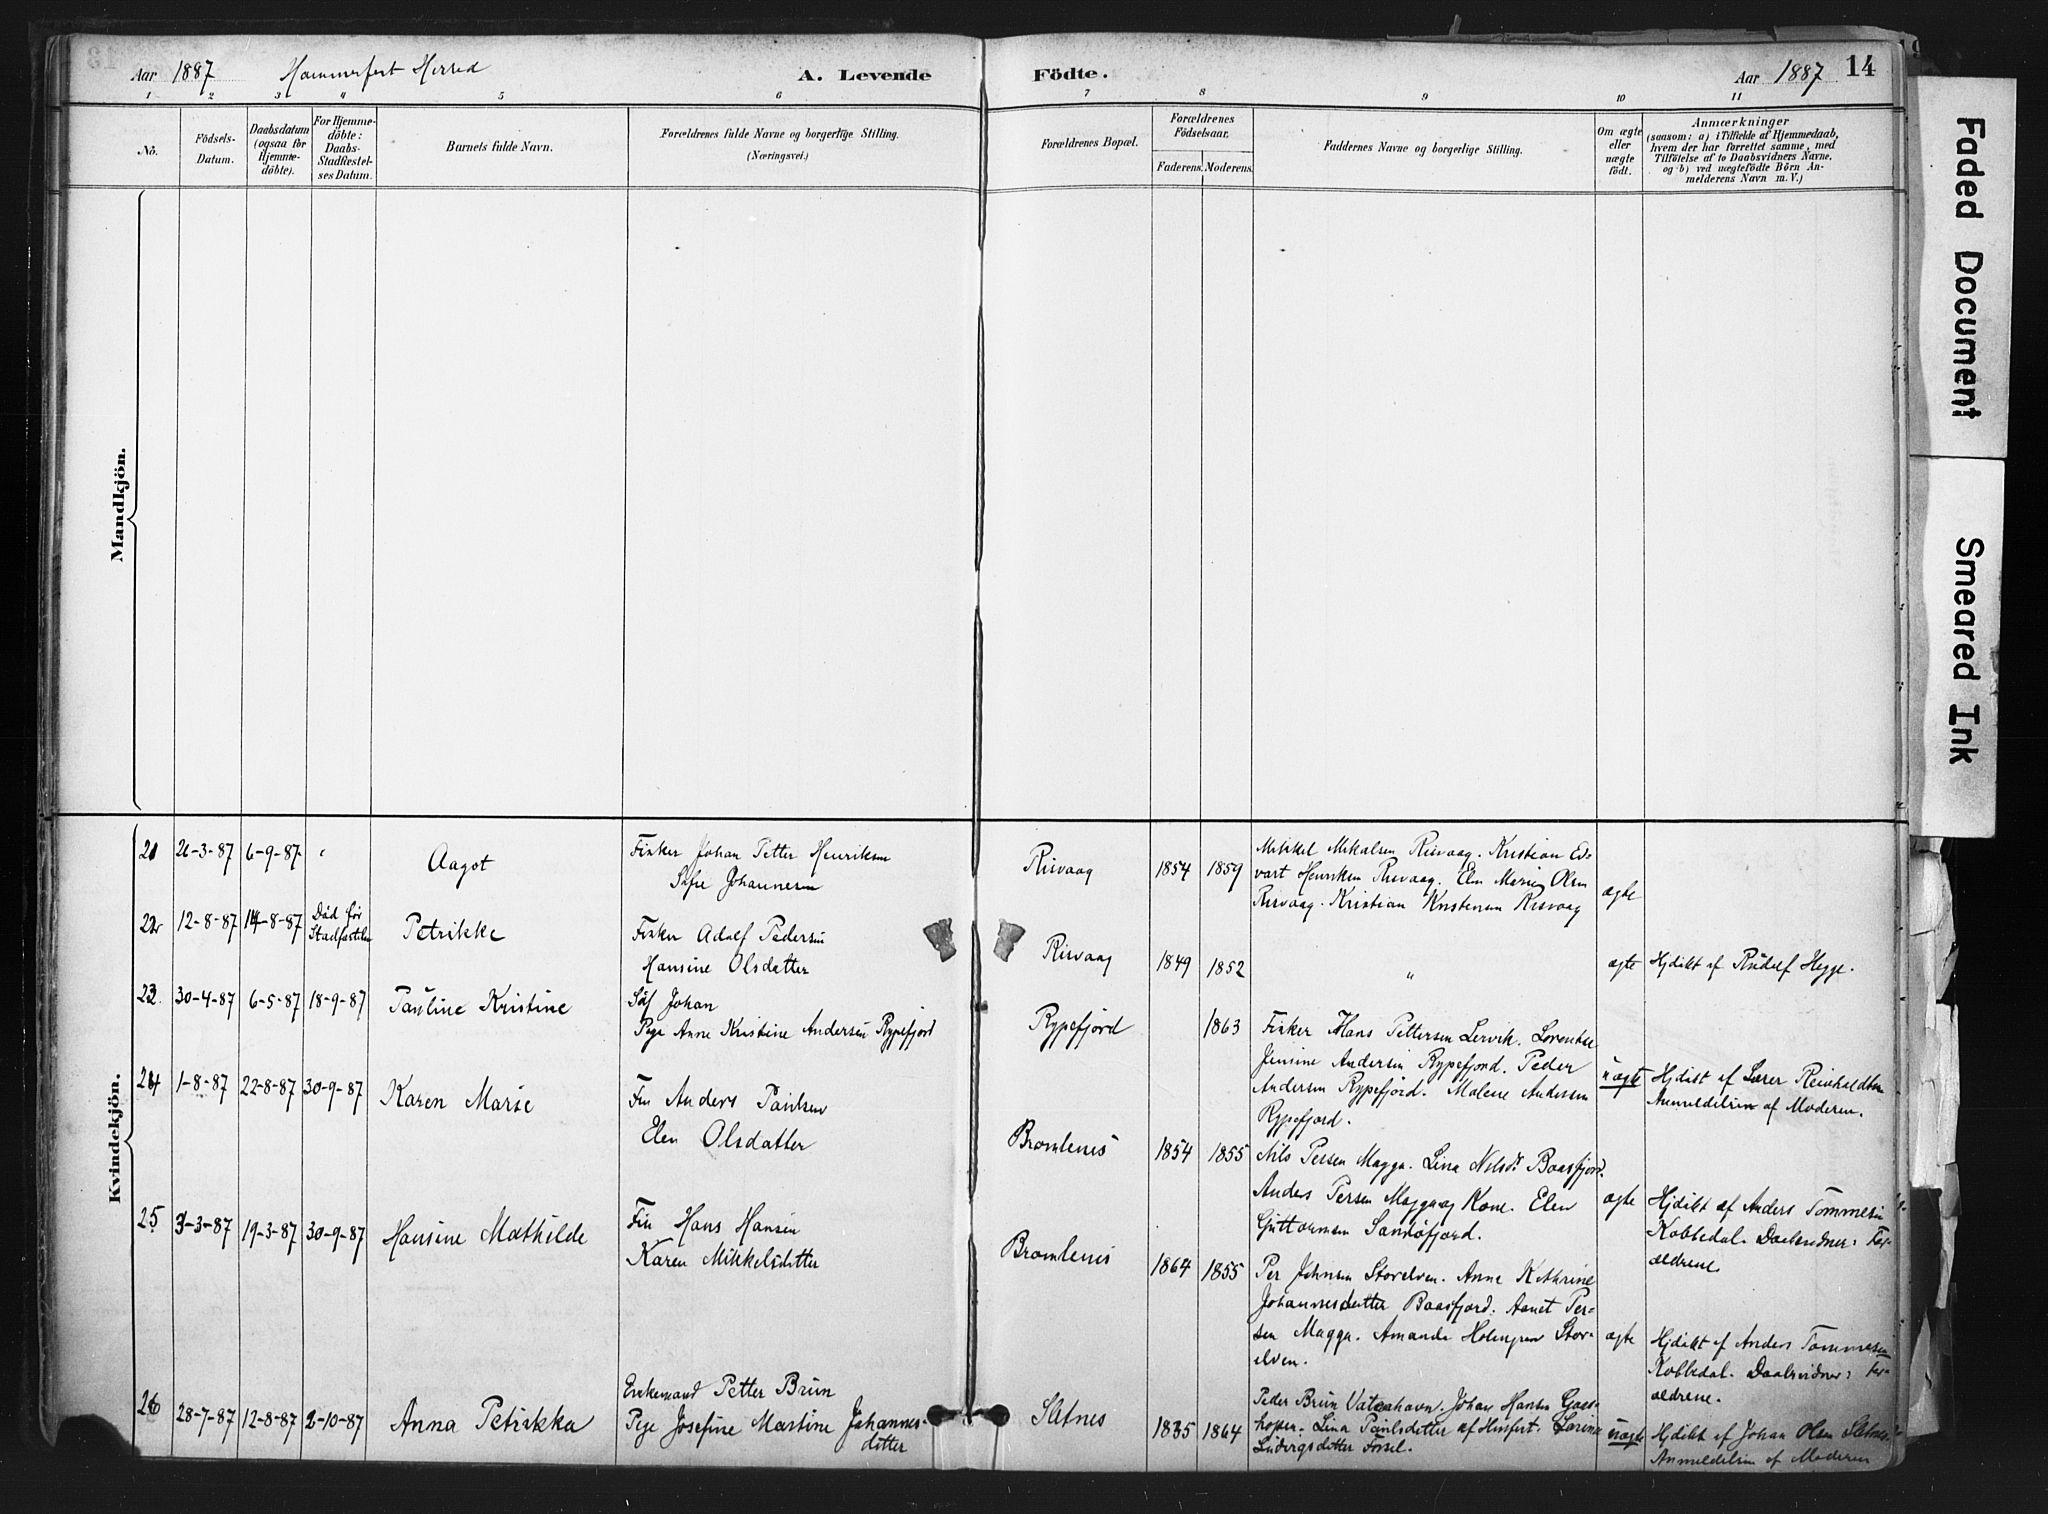 Aar 1887 Hammerfest Herred A. Levende Födte. Aar 1887 14
1 2 3 4 5 6 7 8 9 10 11
No.
Födsels-
Datum.
Daabsdatum
(ogsaa for
Hjemme-
döbte).
For Hjemme-
döbte:
Daabs-
Stadfæstel-
ses Datum.
Barnets fulde Navn.
Forældrenes fulde Navne og borgerlige Stilling.
(Næringsvei.)
Forældrenes Bopæl.
Forældrenes
Födselsaar.
Faderens. Moderens.
Faddernes Navne og borgerlige Stilling.
Om ægte
eller
uægte
födt.
Anmærkninger
(saasom: a) i Tilfælde af Hjemmedaab,
hvem der har forrettet samme, med
Tilföielse af to Daabsvidners Navne,
og b) ved uægtefödte Börn An-
melderens Navn m. V.)
Mandkjön.
Kvindekjön.
21 21-3-87 6-9-87 "
Aagot
Fisker Johan Petter Henriksen
Sofie Johannesen
Risvaag
1854 1859
Mikkel Mikalsen Risvaag. Kristian Ed-
vart Henriksen Risvaag. Elen Marie Olsen
Risvaag. Kristian Kristensen Risvaag
ægte
22 12-8-87 14-8-87
Död før
Stadfæstelse
Petrikke
Fisker Adolf Pedersen
Hansine Olsdatter
Risvaag
1849 1852
"
ægte
Hjdøbt af Rudolf Hegge.
23 30-4-87 6-5-87 18-9-87
Pauline Kristine
Johan
Pige Anne Kristine Andersen Rypefjord
Rypefjord
1863
Fisker Hans Pettersen Lervik. Lorentse
Jensine Andersen Rypefjord. Peder
Andersen Rypefjord. Malene Andersen
Rypefjord.
uægte
Hjdøbt af Lærer Reinholdtsen
Anmeldelsen af Moderen.
24 1-8-87 22-8-87 30-9-87
Karen Marie
Fin Anders Paulsen
Elen Olsdatter
Bromlenes
1854 1855
Nils Persen Magga. Lina Nilsd. Baasfjord.
Anders Persen Magga og Kone. Elen
Guttormsen Sandøfjord.
ægte
Hjdøbt af Anders Tommesen
Kobbedal. Daabsvidner: For-
ældrene.
25 3-3-87 19-3-87 30-9-87
Hansine Mathilde
Fin Hans Hansen
Karen Mikkelsdatter
Bromlenes
1864 1855
Per Johnsen Storelven. Anne Kathrine
Johannesdatter Baasfjord. Per-
sen Magga. Amanda Holmgren Stor-
elven.
ægte
Hjdøbt af Anders Tommesen
Kobbedal. Daabsvidner: For-
ældrene.
26 28-7-87 12-8-87 2-10-87
Anna Petrikka
Enkemand Petter Brun
Pige Josefine Martine Johannes-
datter
Sletnes
1835 1864
Peder Brun Johan Hansen Gaas-
hopen. Lina Paulsdatter af Hmfest.
Ludvigsdatter Forsøl.
uægte
Hjdøbt af Johan Olsen Sletnes.
Anmeldelsen af Moderen
Faded Document
Smeared Ink